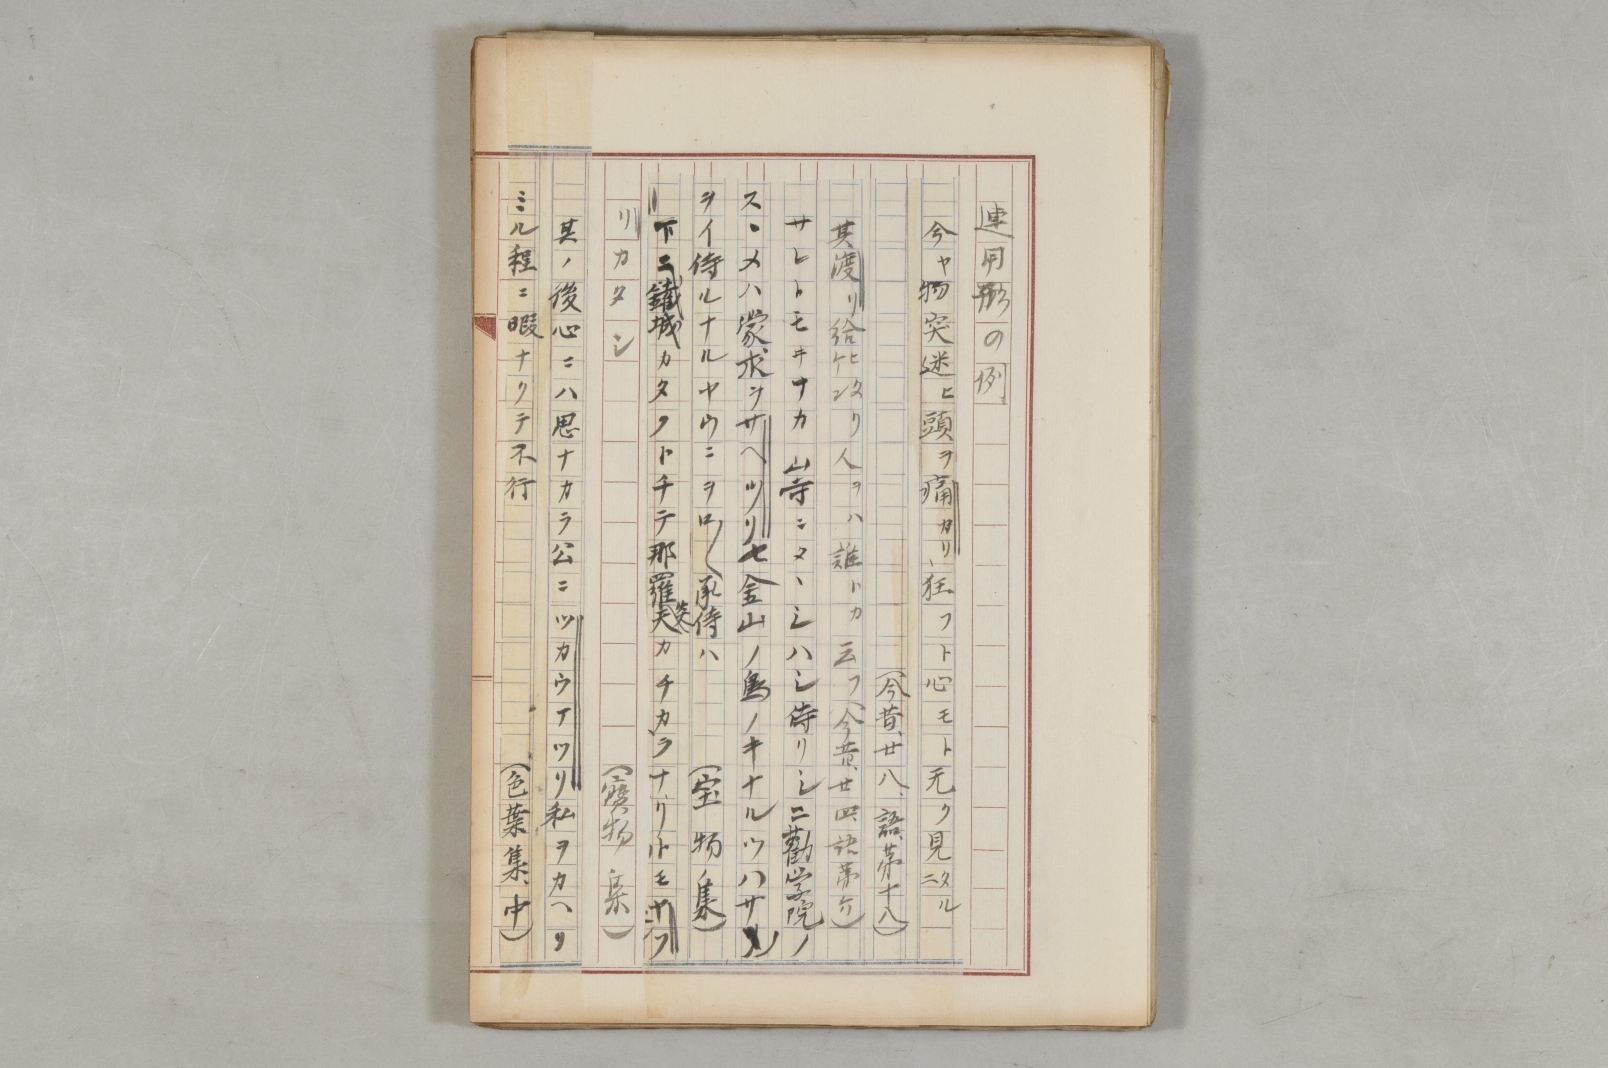 連用形の例
今ヤ物突迷ヒ頭ヲ痛カリ、狂フト心モト无ク見ニタル
(今昔、廿八、語、第十八)
其渡リ給ヒケ政リ人ヲハ誰トカ云フ(今昔、廿四語第
サレトモキナカ山寺ニタヽシハシ侍リシニ勸学院ノ
スヽメハ蒙求ヲサヘツリ七金山ノ鳥ノキナルツハサ
ヲイ侍ルナルヤウニヲロ〱承侍ハ(宝物集)
下ニ鐵城カタクトチテ那羅天カチカラナリトモヤフ
リカタシ(寶物集)
其ノ後心ニハ思ナカラ公ニツカウアツリ私ヲカヘリ
ミル程ニ暇ナクテ不行(色葉集、中)